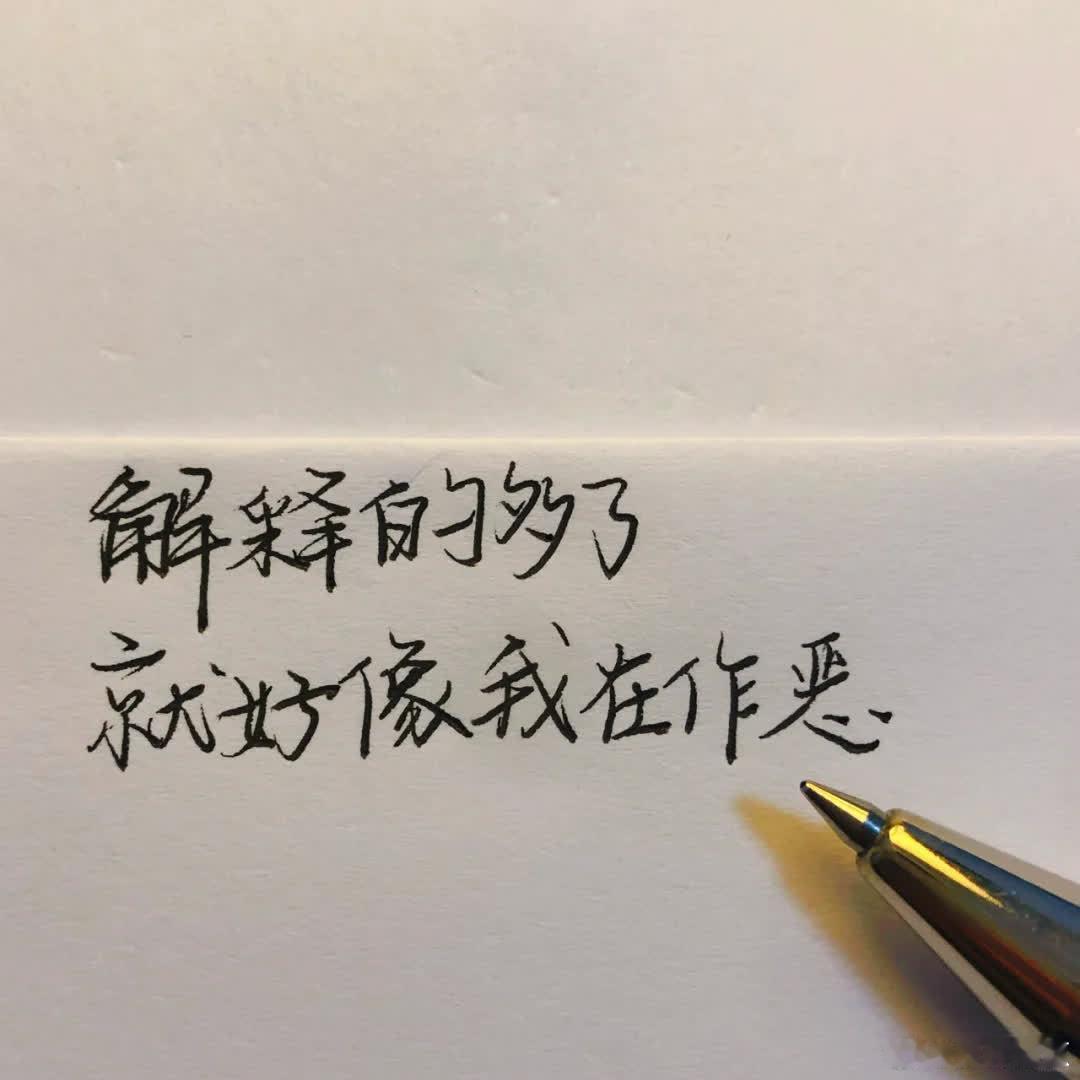 解释的够了
就好像我在作恶